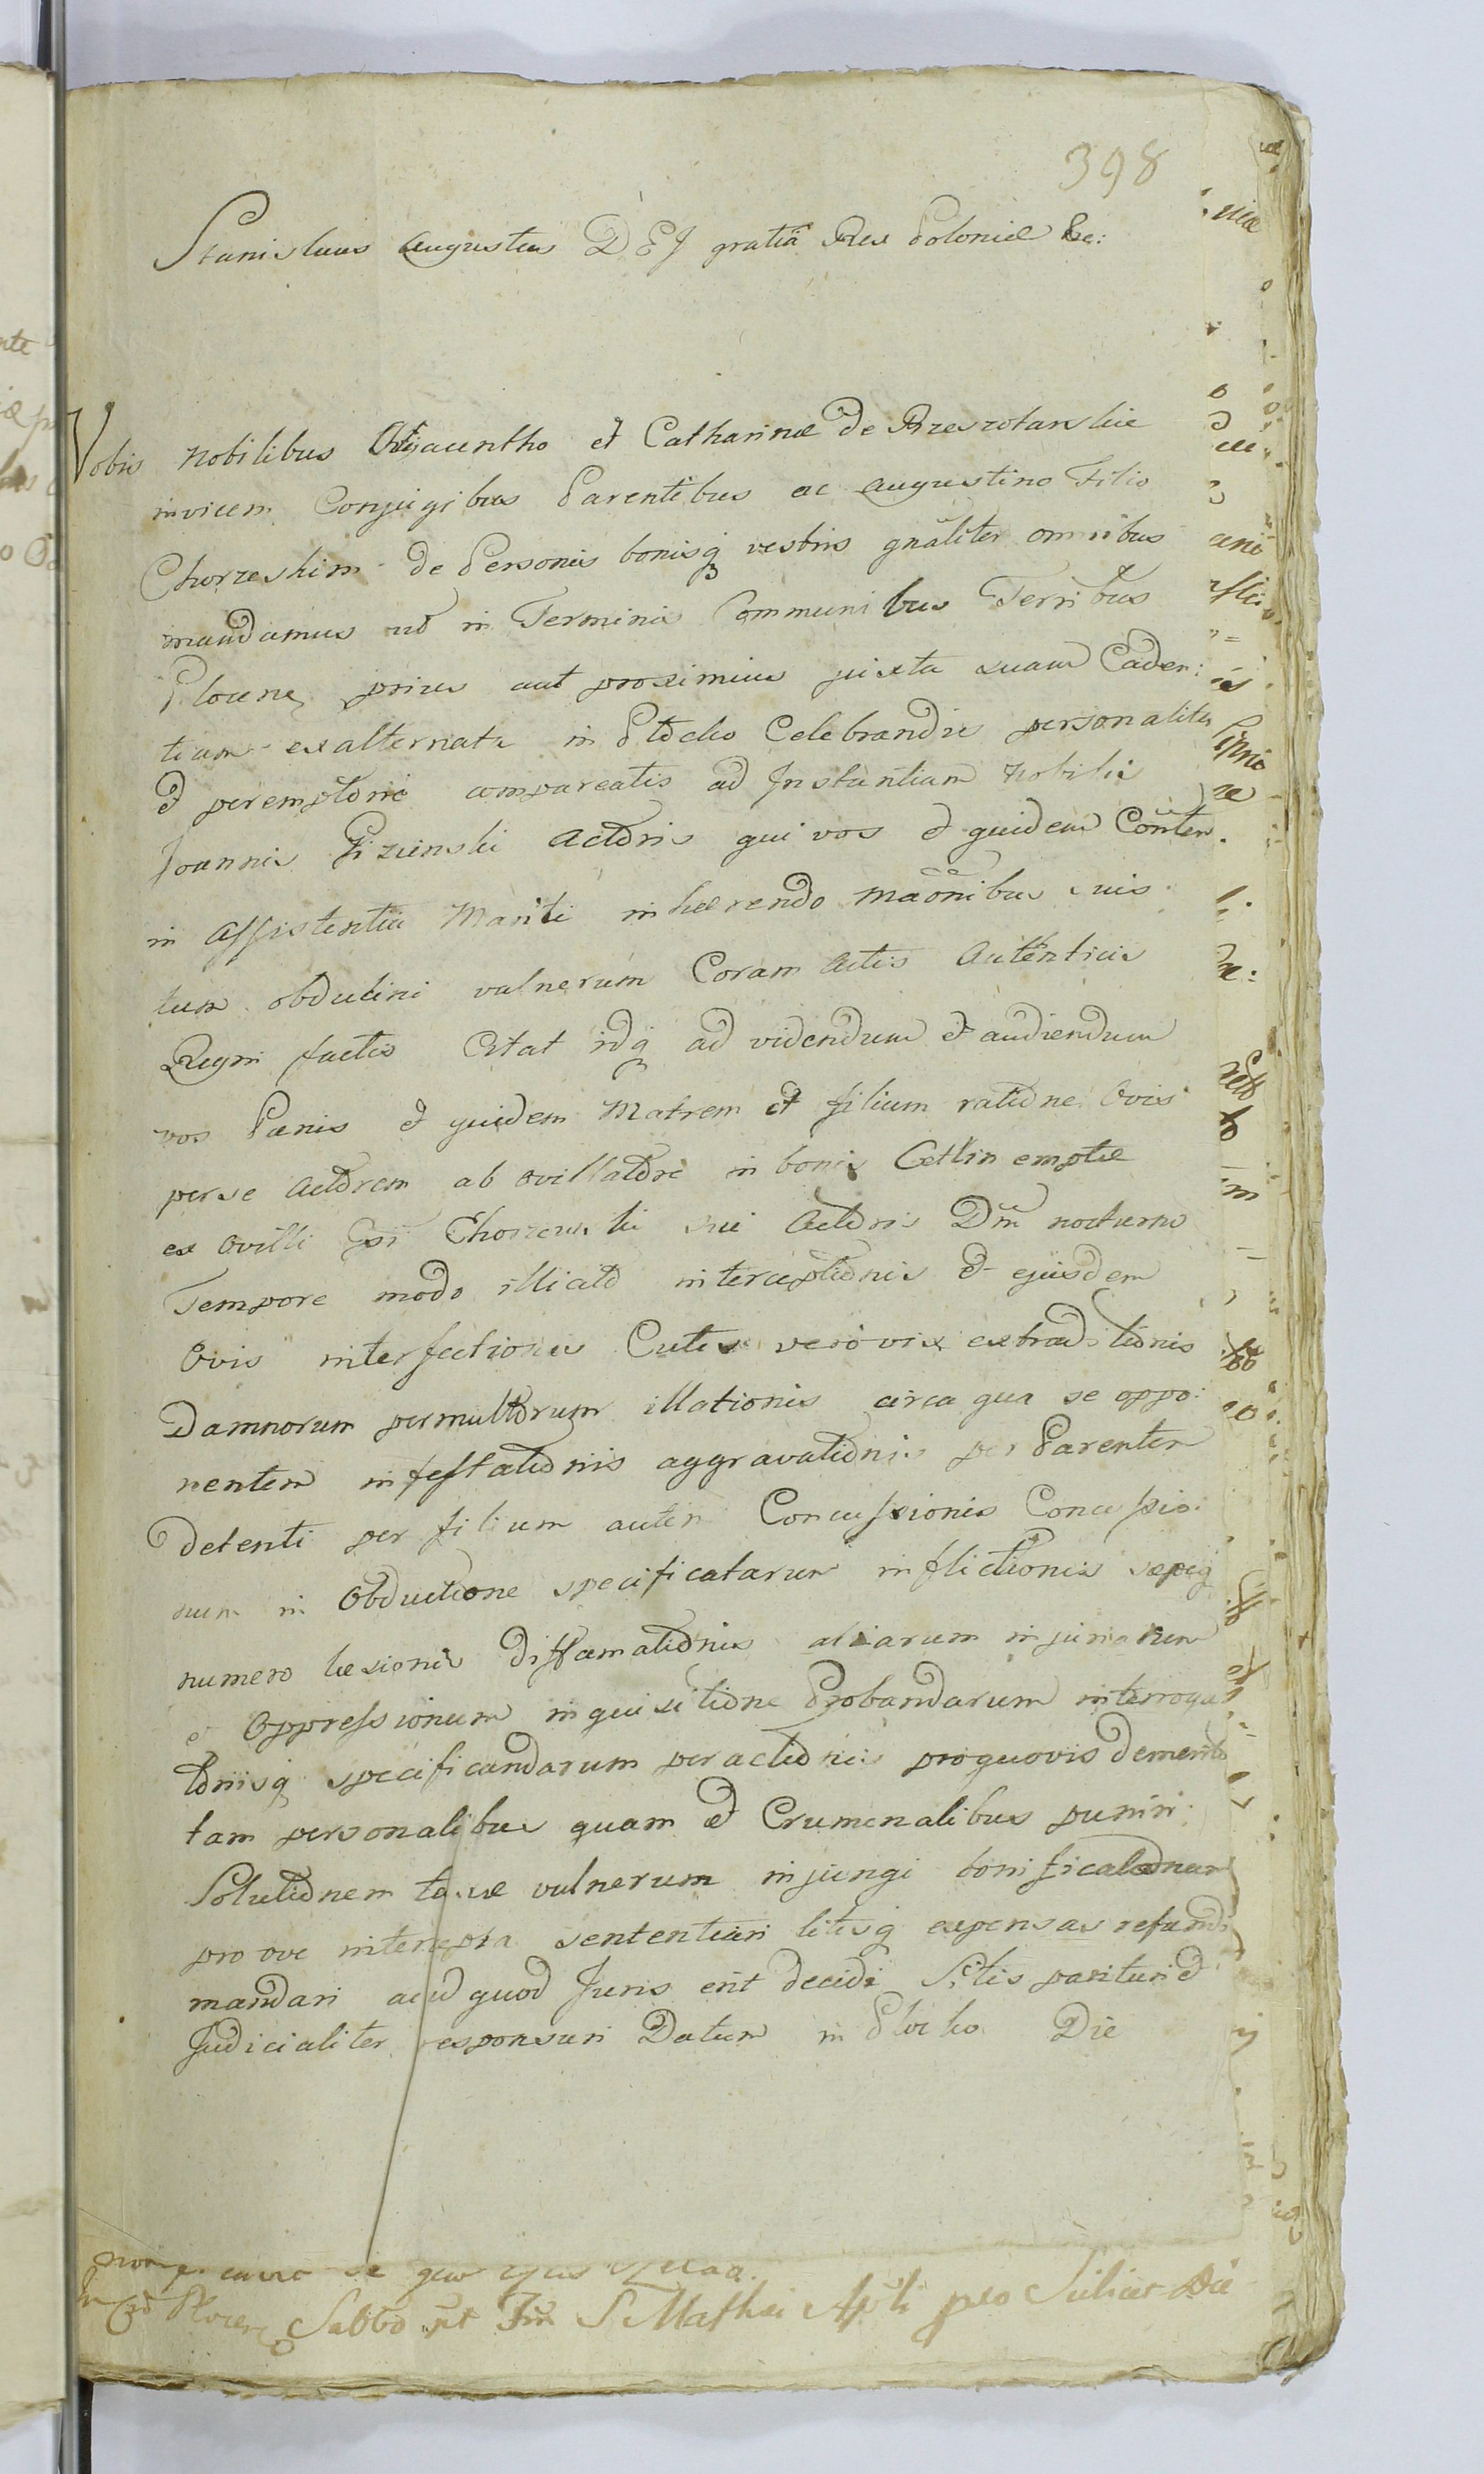 398
Stanislaus Augustus DEJ gratiã Rex Poloniæ &c:
Vobis Nobilibus Hyacintho et Catharinæ de
invicem Conjugibus Parentibus ac Augustino Filio
Chorzeskim de Personis bonisq vestris gnãliter omnibus
mandamus ut in Terminis Communibus Terribus
Plocens prius aut proximius juxta suam Caden:
tiam exalternata in Plocko Celebrandis personaliter
et peremptorie compareatis ad Instantiam Nobilis
Joannis Actoris qui vos et quidem Conten
in Assistentia Mariti inhærendo Maõnibus suis
tum obductini vulnerum Coram Actis Autenticis
Regni factis Citat idq ad videndum et audiendum
vos Pænis et quidem Matrem et filium ratione Ovis
per se Actorem ab ovillatore in bonis Cetlin emptæ
ex ovilli Gsi Chorzeuski sui Actoris Dm nocturno
Tempore modo illicito interceptionis et ejusdem
Ovis interfectionis Cutis vero vix extraditionis
Damnorum permultorum illationis circa qua se oppo:
nentem infestationis aggravationis per Parentem
detenti per filium autem Concussionis Concussio:
num in Obductione specificatarum inflictionis sepeq
numero læsionis diffamationis aliarum injuriarum
et Oppressionum inquisitione Probandarum interroga
toriisq specificandarum peractionis proquovis demerito
tam personalibus quam et Crumenalibus puniri
Solutionem taxæ vulnerum injungi bonificationem
pro ove intercepta sententiari litisq expensas refundi
mandari aliud quod Juris erit decidi Sitis parituri et
Judicialiter responsuri Datum in Plocko Die
Sabbo pt Fm S Mathæi Apli pro